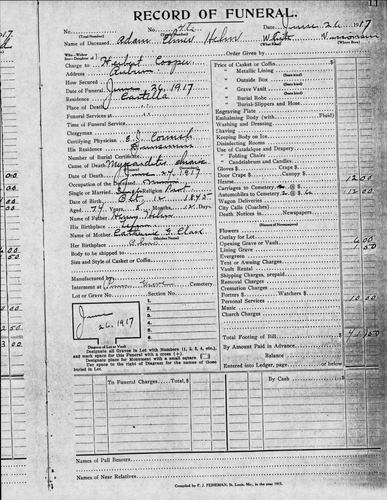 RECORD OF FUNERAL.
No.
(Total Number)
Date June 26 1917
Name of Deceased Adam Elmer Helm
White
(What Race)
(Where Born)
Charge to Herbert Cooper
Order Given by
Address Auburn
How Secured
Date of Funeral June 26, 1917
Residence Castella
Place of Death
Funeral Services at
Time of Funeral Service
Clergyman
Certifying Physician E. J. Cornish
His Residence Dunsmuir
Number of Burial Certificate
Cause of Death Myocarditis
Date of Death June 24, 1917
Occupation of the Deceased
Single or Married Religion
Date of Birth Oct. 12 1842
Aged 74 Years Months 12 Days
Name of Father Henry Helm
His Birthplace
Name of Mother Catherine S. Clark
(Maiden Name)
Her Birthplace
Body to be shipped to
Size and Style of Casket or Coffin
Manufactured by
Interment at Cemetery
Lot or Grave No. Section No.
June
26, 1917
1
2
3
4
5
6
Diagram of Lot or Vault
Designate all Graves in Lot with Numbers (1, 2, 3, 4, etc.),
and mark space for this Funeral with a cross (+)
Designate place for Monument with a small square
Use space to the right of Diagram for names of those
buried in Lot.
Price of Casket or Coffin
" Metallic Lining
(State kind)
" Outside Box
(State kind)
" Grave Vault
(State kind)
" Burial Robe
(State kind)
" Burial-Slippers and Hose
Engraving Plate
Embalming Body (with Fluid)
Washing and Dressing
Shaving
Keeping Body on Ice
Disinfecting Rooms
Use of Catafalque and Drapery
" Folding Chairs
" Candelabrum and Candles
Gloves $ Crape $
Hearse 12.00
Carriages to Cemetery @ $
Automobiles to Cemetery 2 @ $ 6.00 12.00
Wagon Deliveries
City Calls (Coaches)
Death Notices in Newspapers
(Names of Newspapers)
Flowers
Outlay for Lot
Opening Grave or Vault 6.00
Lining Grave .50
Evergreen
Tent or Awning Charges
Vault Rental
Shipping Charges, prepaid
Removal Charges
Cremation Charges
Porters $ Watchers $
Personal Services 10.00
Music
Church Charges
Total Footing of Bill
By Amount Paid in Advance
Balance
Entered into Ledger, page or below
To Funeral Charges Total, $
By Cash $
Names of Pall Bearers
Names of Near Relatives
Compiled by F. J. FEINEMAN, St. Louis, Mo., in the year 1905.